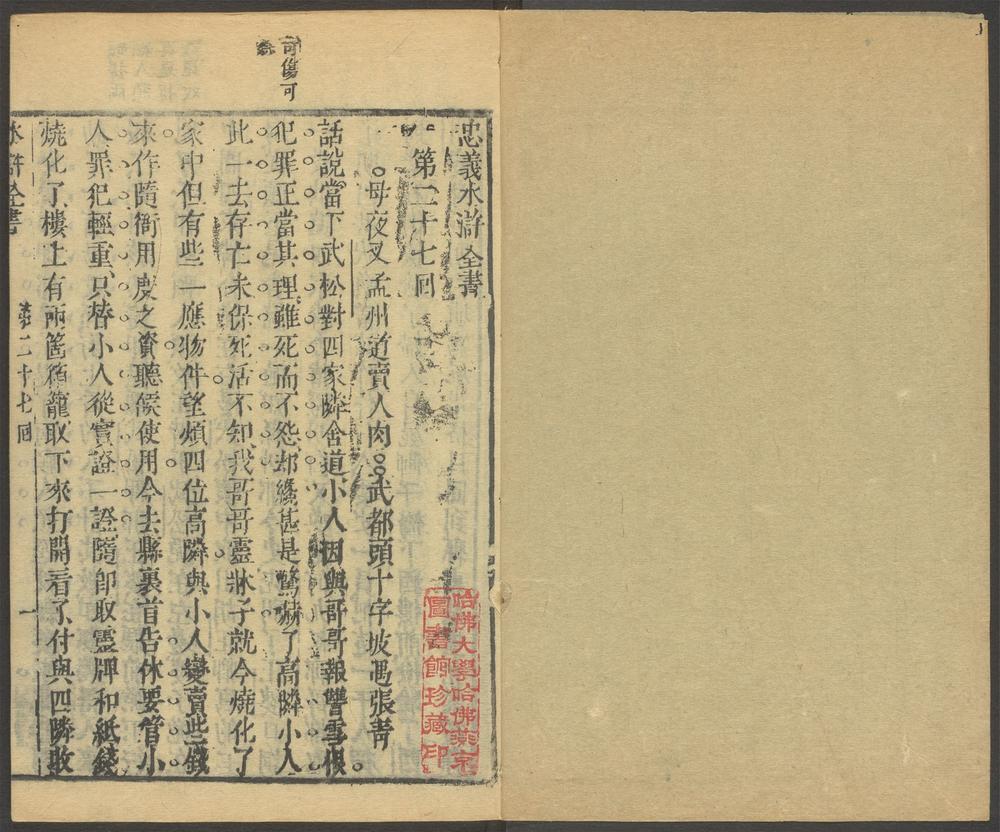 忠義水滸全書
第二十七回
母夜叉孟州道賣人肉 武都頭十字坡遇張青
話說當下武松對四家隣舍道小人因與哥哥報讐雪恨
犯罪正當其理雖死而不怨却纔甚是驚嚇了高隣小人
此一去存亡未保死活不知我哥哥靈牀子就今燒化了
家中但有些一應物件望煩四位高隣與小人變賣些錢
來作隨衙用度之資聽候使用今去縣裏首告休要管小
人罪犯輕重只替小人從實證一證隨卽取靈牌和紙錢
燒化了樓上有兩箇箱籠取下來打開看了付與四隣收
可傷可
水滸全書
第二十七回
一
哈佛大學哈佛燕京
圖書館珍藏印